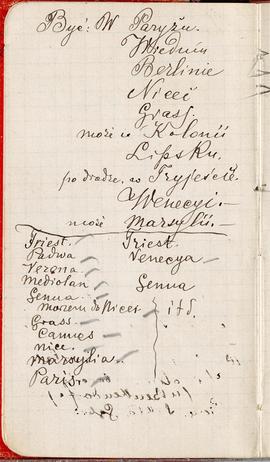 Być: W Paryżu.
Wiedniu
Berlinie
Nicei
Grass.
może w Kolonii
Lipsku.
po drodze. w Tryjeście.
Wenecyi.-
może Marsylii.-
Triest. Triest.
Padwa Venecya -
Verona
Mediolan Genua
Genua
morzem do Nicei itd.
Grass
Cannes
nice.
Marsylia.
Paris